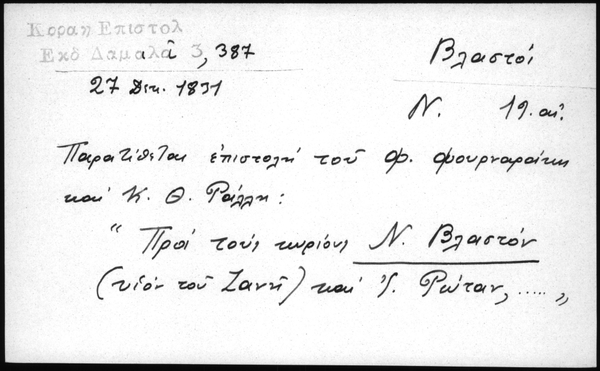 Κοραη Επιστολ
Εκδ Δαμαλᾶ 3, 387
27 Δεκ. 1831
Βλαστοί
Ν. 19. αἰ.
Παρατίθεται ἐπιστολή τοῦ Φ. Φουρναράκη
καί Κ. Θ. Ράλλη:
"Πρός τούς κυρίους Ν. Βλαστόν
(υἱόν τοῦ Ζαννῆ) καί Ρώταν, ..... „